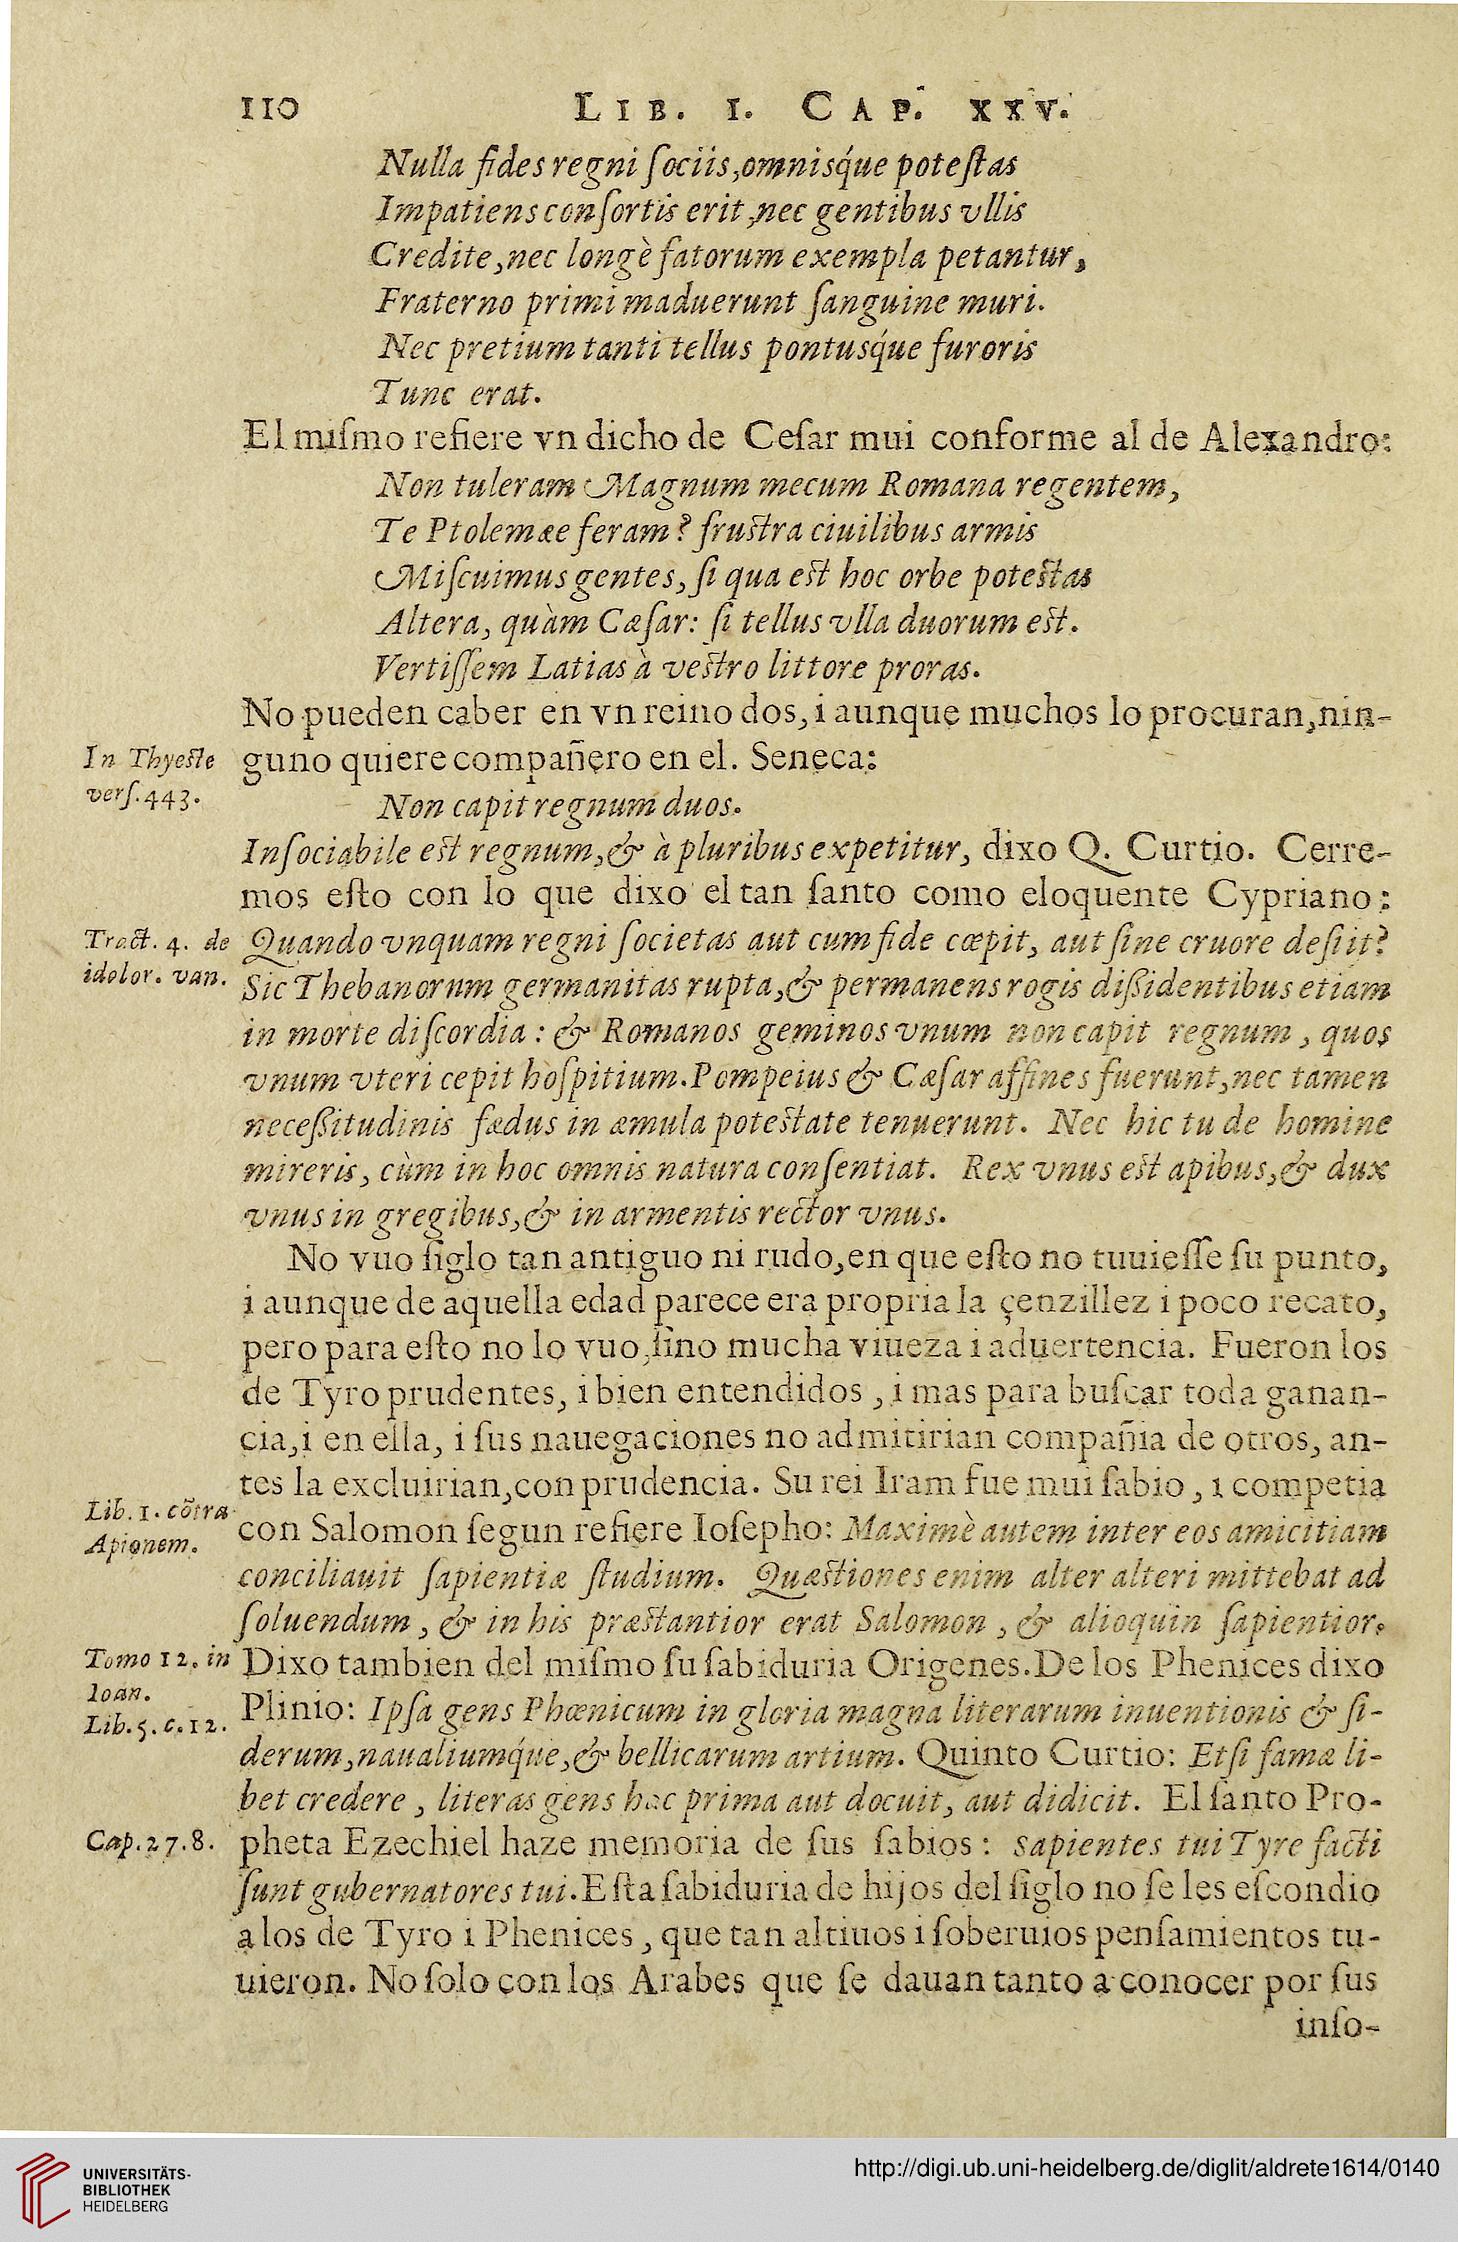 110 LIB. I. CAP. XXV.
Nulla fides regni ſociis,omnisq́ue poteſtas
Impatiens conſortis erit,nec gentibus vllis
Credite,nec longè fatorum exempla petantur,
Fraterno primi maduerunt ſanguine muri.
Nec pretium tanti tellus pontusq́ue furoris
Tunc erat.
El miſmo refiere vn dicho de Ceſar mui conforme al de Alexandro:
Non tuleram Magnum mecum Romana regentem,
Te Ptolemæe feram? fruſtra ciuilibus armis
Miſcuimus gentes, ſi qua eſt hoc orbe poteſtas
Altera, quàm Cæſar: ſi tellus vlla duorum eſt.
Vertiſſem Latias à veſtro littore proras.
No pueden caber en vn reino dos, i aunque muchos lo procuran,nin-
In Thyeſte
verſ.443.
guno quiere compañero en el. Seneca:
Non capit regnum duos.
Inſociabile eſt regnum,& à pluribus expetitur, dixo Q. Curtio. Cerre-
mos eſto con lo que dixo el tan ſanto como eloquente Cypriano:
Tract. 4. de
idolor. van.
Quando vnquam regni ſocietas aut cum fide cœpit, aut ſine cruore deſiit?
Sic Thebanorum germanitas rupta,& permanens rogis diſsidentibus etiam
in morte diſcordia: & Romanos geminos vnum non capit regnum, quos
vnum vteri cepit hoſpitium.Pompeius & Cæſar affines fuerunt,nec tamen
neceſsitudinis fædus in æmula poteſtate tenuerunt. Nec hic tu de homine
mireris, cùm in hoc omnis natura conſentiat. Rex vnus eſt apibus,& dux
vnus in gregibus,& in armentis rector vnus.
No vuo ſiglo tan antiguo ni rudo,en que eſto no tuuieſſe ſu punto,
i aunque de aquella edad parece era propria la çenzillez i poco recato,
pero para eſto no lo vuo,ſino mucha viueza i aduertencia. Fueron los
de Tyro prudentes, i bien entendidos, i mas para buſcar toda ganan-
cia,i en ella, i ſus nauegaciones no admitirian compañia de otros, an-
tes la excluirian,con prudencia. Su rei Iram fue mui ſabio, i competia
Lib. 1. cõtra
Apionem.
con Salomon ſegun refiere Ioſepho: Maximè autem inter eos amicitiam
conciliauit ſapientiæ ſtudium. Quæſtiones enim alter alteri mittebat ad
ſoluendum, & in his præſtantior erat Salomon, & alioquin ſapientior.
Tomo 12. in
Ioan.
Dixo tambien del miſmo ſu ſabiduria Origenes.De los Phenices dixo
Lib.5.c.12.
Plinio: Ipſa gens Phœnicum in gloria magna literarum inuentionis & ſi-
derum,naualiumq́ue,& bellicarum artium. Quinto Curtio: Et ſi famæ li-
bet credere, literas gens hæc prima aut docuit, aut didicit. El ſanto Pro-
Cap.27.8.
pheta Ezechiel haze memoria de ſus ſabios: Sapientes tui Tyre facti
ſunt gubernatores tui.Eſta ſabiduria de hijos del ſiglo no ſe les eſcondio
a los de Tyro i Phenices, que tan altiuos i ſoberuios penſamientos tu-
uieron. No ſolo con los Arabes que ſe dauan tanto a conocer por ſus
inſo-
UNIVERSITÄTS-
BIBLIOTHEK
HEIDELBERG
http://digi.ub.uni-heidelberg.de/diglit/aldrete1614/0140